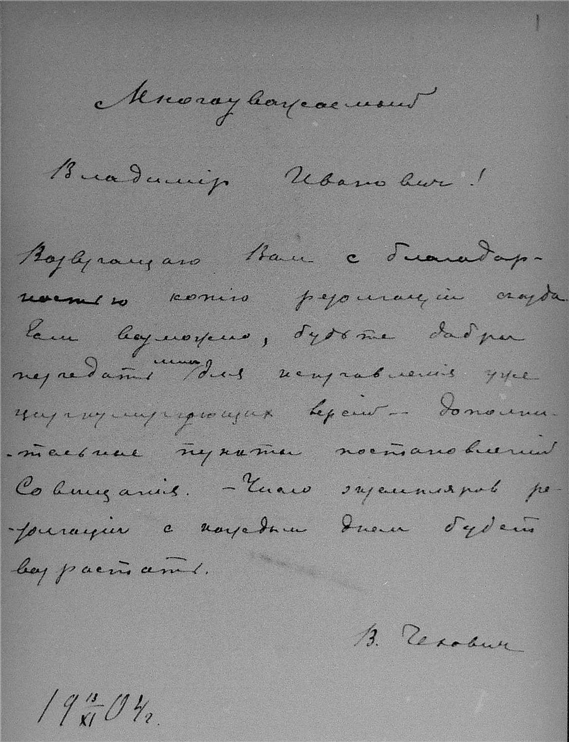 Многоуважаемый
Владимір Иванович!
Возвращаю Вам с благодар-
ностью копію резолюціи съезда.
Если возможно, будьте добры
передать мне для исправленія уже
циркулирующих версій — дополни-
тельные пункты постановленій
Совещанія. — Число экземпляров ре-
золюціи с каждым днем будет
возрастать.
В. Чехович
19 13/XI 04 г.